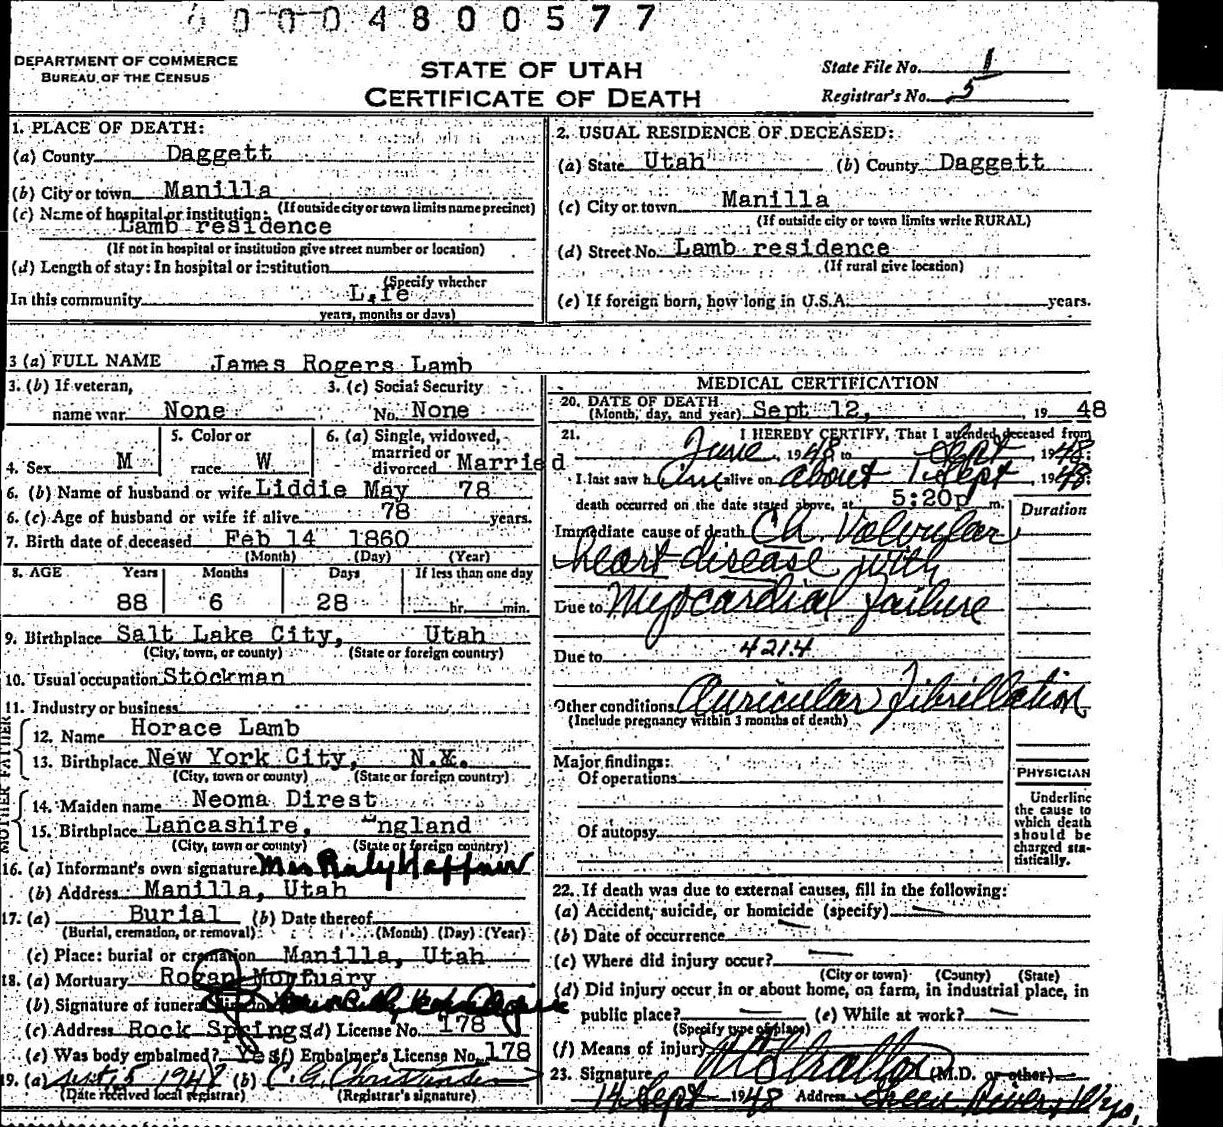 0 0 0 4 8 0 0 5 7 7
DEPARTMENT OF COMMERCE
BUREAU OF THE CENSUS
STATE OF UTAH
CERTIFICATE OF DEATH
State File No. 1
Registrar's No. 5
1. PLACE OF DEATH:
(a) County Daggett
(b) City or town Manilla
(If outside city or town limits name precinct)
(c) Name of hospital or institution:
Lamb residence
(If not in hospital or institution give street number or location)
(d) Length of stay: In hospital or institution
(Specify whether
In this community L.fe
years, months or days)
2. USUAL RESIDENCE OF DECEASED:
(a) State Utah (b) County Daggett
(c) City or town Manilla
(If outside city or town limits write RURAL)
(d) Street No. Lamb residence
(If rural give location)
(e) If foreign born, how long in U.S.A. years.
3 (a) FULL NAME James Rogers Lamb
3. (b) If veteran, 3. (c) Social Security
name war None No. None
5. Color or 6. (a) Single, widowed,
married or
4. Sex M race W divorced Married
6. (b) Name of husband or wife Liddie May 78
6. (c) Age of husband or wife if alive 78 years.
7. Birth date of deceased Feb 14 1860
(Month) (Day) (Year)
8. AGE Years Months Days If less than one day
88 6 28 hr. min.
9. Birthplace Salt Lake City, Utah
(City, town, or county) (State or foreign country)
10. Usual occupation Stockman
11. Industry or business
FATHER
12. Name Horace Lamb
13. Birthplace New York City, N.Y.
(City, town or county) (State or foreign country)
MOTHER
14. Maiden name Neoma Direst
15. Birthplace Lancashire, "ngland
(City, town or county) (State or foreign country)
16. (a) Informant's own signature Mrs
(b) Address Manilla, Utah
17. (a) Burial (b) Date thereof
(Burial, cremation, or removal) (Month) (Day) (Year)
(c) Place: burial or cremation Manilla, Utah
18. (a) Mortuary Rogan Mortuary
(b) Signature of funeral
(c) Address Rock Springs (d) License No. 178
(e) Was body embalmed? Yes (f) Embalmer's License No. 178
19. (a) Sept 15 1948 (b) C. G. Christensen
(Date received local registrar) (Registrar's signature)
MEDICAL CERTIFICATION
20. DATE OF DEATH
(Month, day, and year) Sept 12, 19 48
21. I HEREBY CERTIFY, That I attended deceased from
June, 1948 to Sept 1948:
I last saw him alive on about 1 Sept, 1948:
death occurred on the date stated above, at 5:20p m.
Duration
Immediate cause of death Ch. Valvular
heart disease with
Due to Myocardial failure
Due to 4214
Other conditions Auricular Fibrillation
(Include pregnancy within 3 months of death)
Major findings:
Of operations
Of autopsy
PHYSICIAN
Underline
the cause to
which death
should be
charged sta-
tistically.
22. If death was due to external causes, fill in the following:
(a) Accident, suicide, or homicide (specify) —
(b) Date of occurrence —
(c) Where did injury occur? —
(City or town) (County) (State)
(d) Did injury occur in or about home, on farm, in industrial place, in
public place? — (e) While at work? —
(Specify type of place)
(f) Means of injury
23. Signature Stratton (M.D. or other)
14 Sept 1948 Address Green River, Wyo.